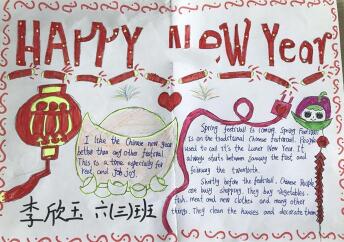 HAPPY NEW Year
I like the Chinese new year
better than any other festival.
This is a time especially for
rest and joy.
Spring festival is coming. Spring Festival
is on the traditional Chinese festival. People
used to call it's the Lunar New Year. It
always starts between January the first and
february the twentieth.
Shortly before the festival, Chinese People
are busy shopping. They buy vegetables.
fish, meat and new clothes and many other
things. They clean the houses and decorate them
李欣玉 六(三)班